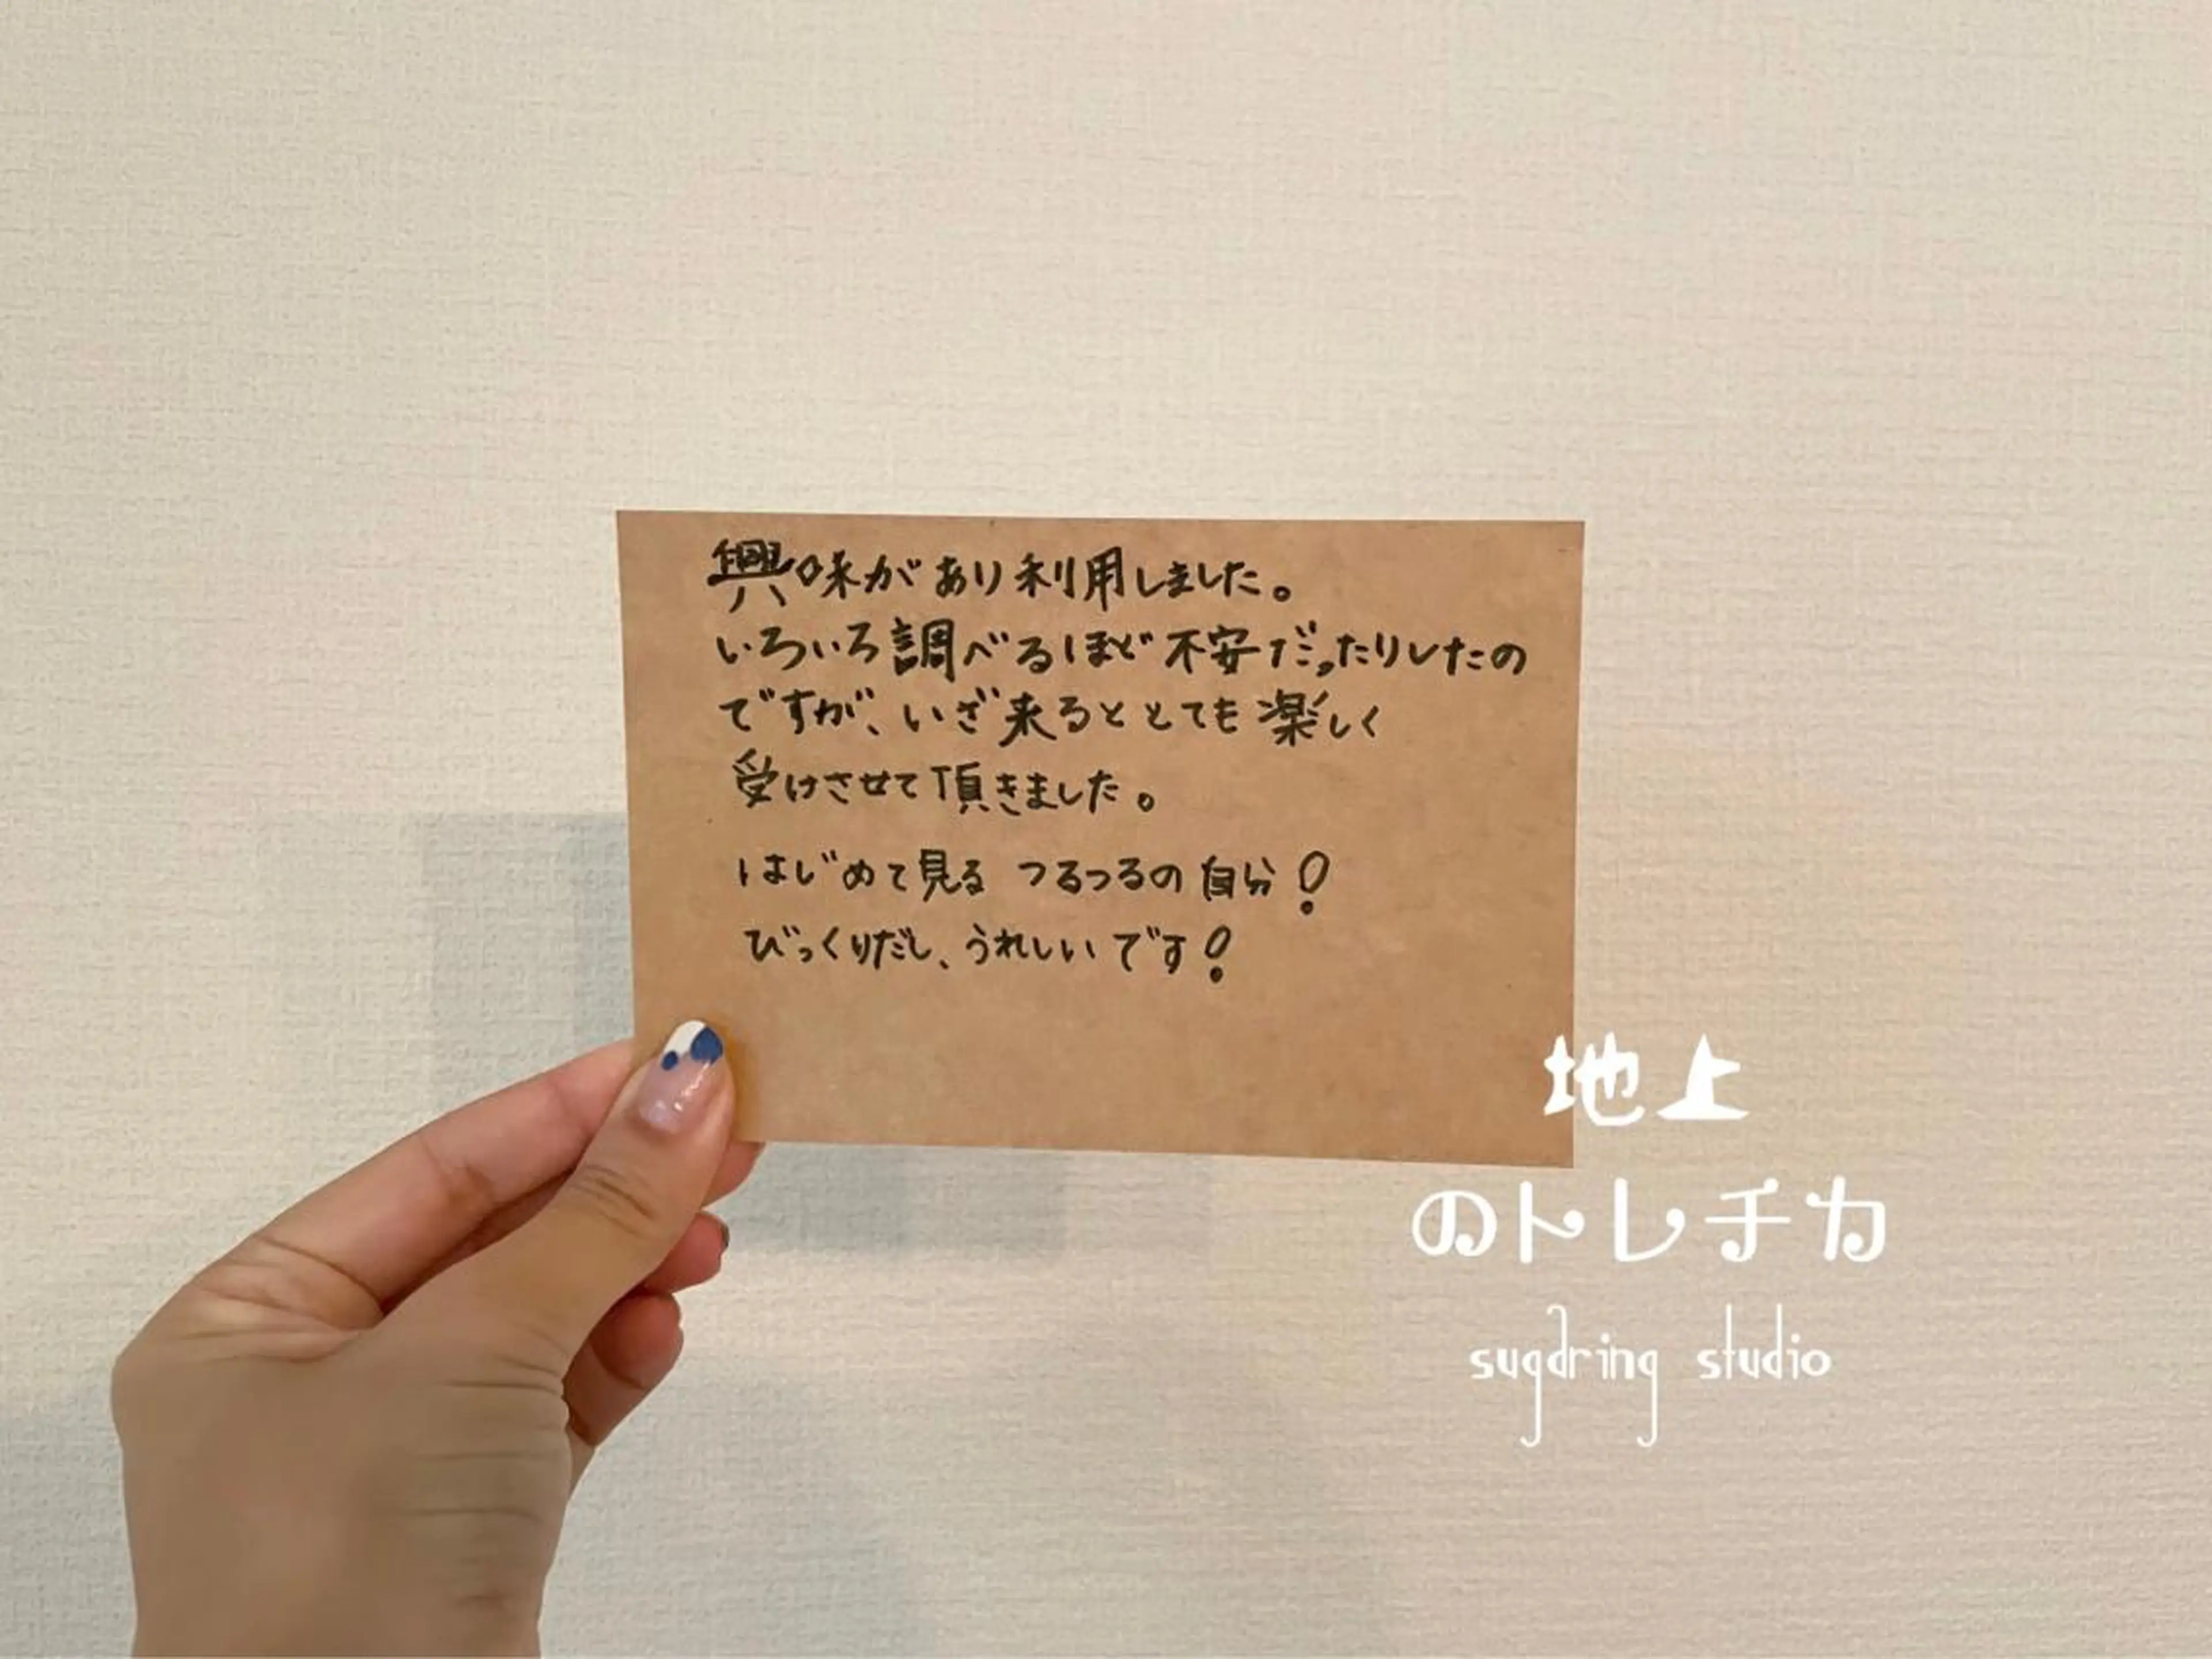 興味があり利用しました。
いろいろ調べるほど不安だったりしたの
ですが、いざ来るととても楽しく
受けさせて頂きました。
はじめて見る つるつるの自分!
びっくりだし、うれしいです!
地上
のトレチカ
sugaring studio